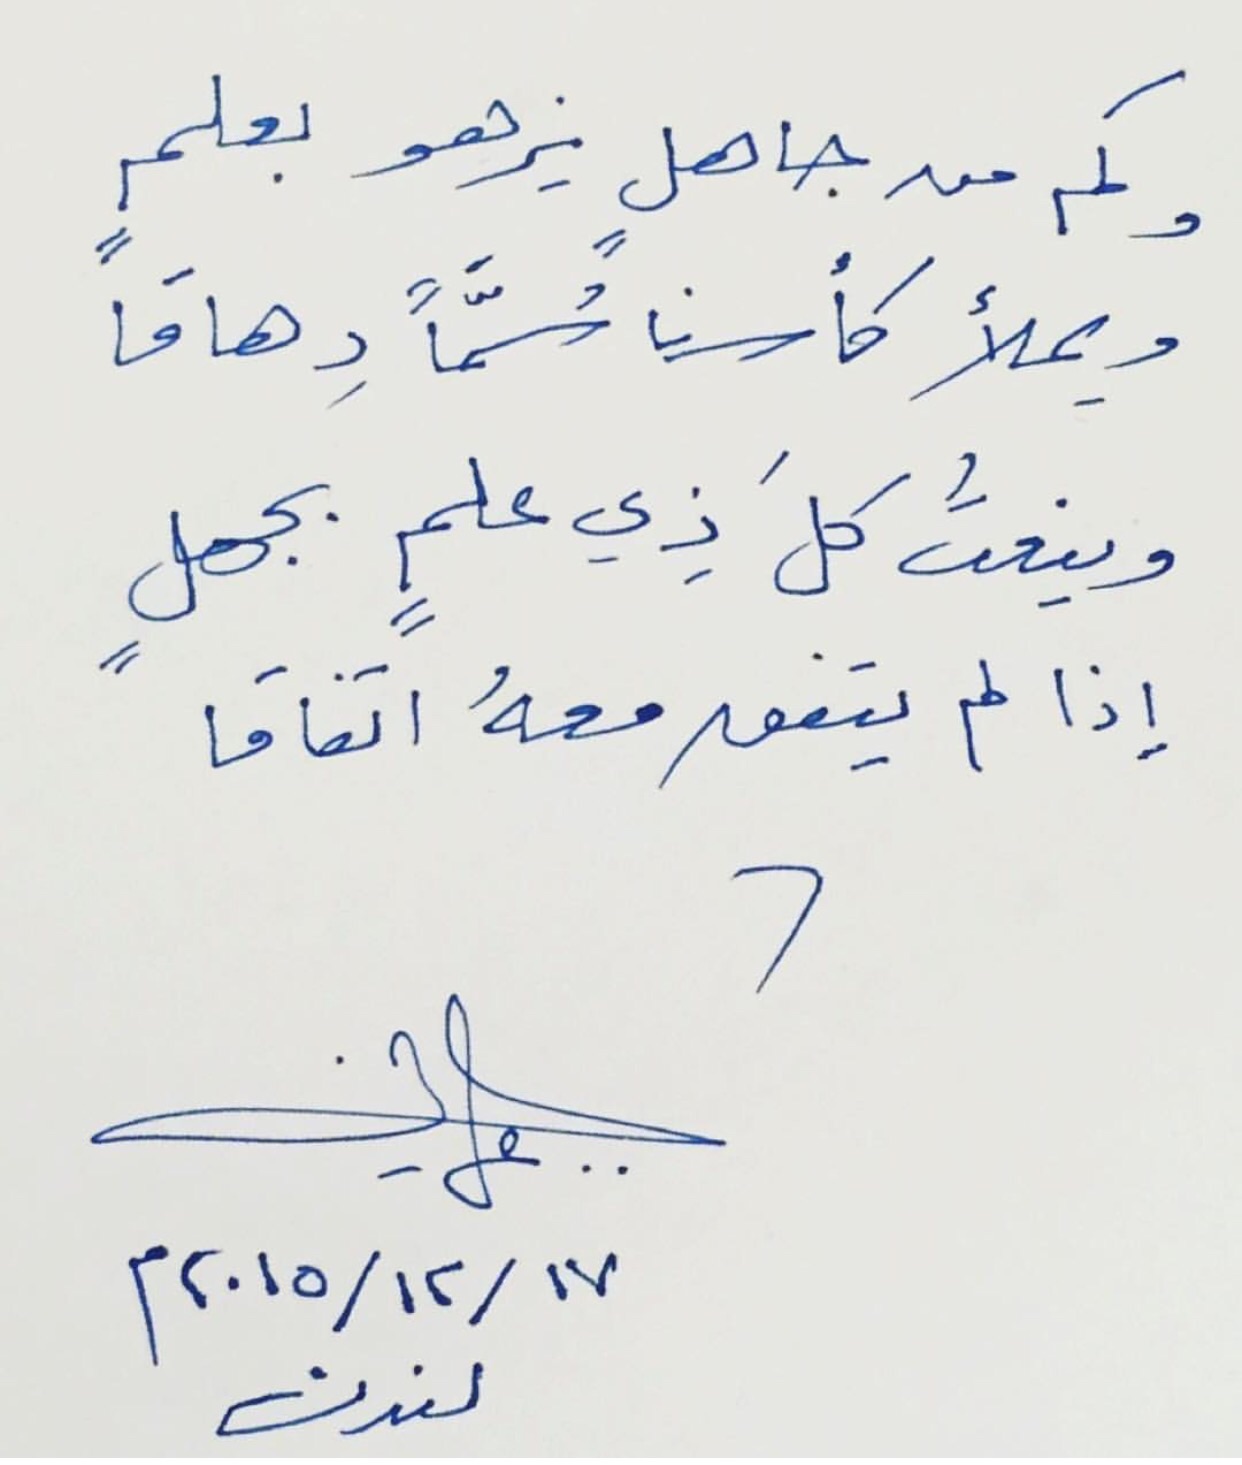 وكم من جاهلٍ يزهو بعلمٍ
ويملأ كأسنا سُمَّاً دِهاقَا
وينعتُ كلَ ذِي علمٍ بجهلٍ
إذا لم يتفق معهُ اتَفاقَا
١٧/١٢/٢٠١٥م
لندن